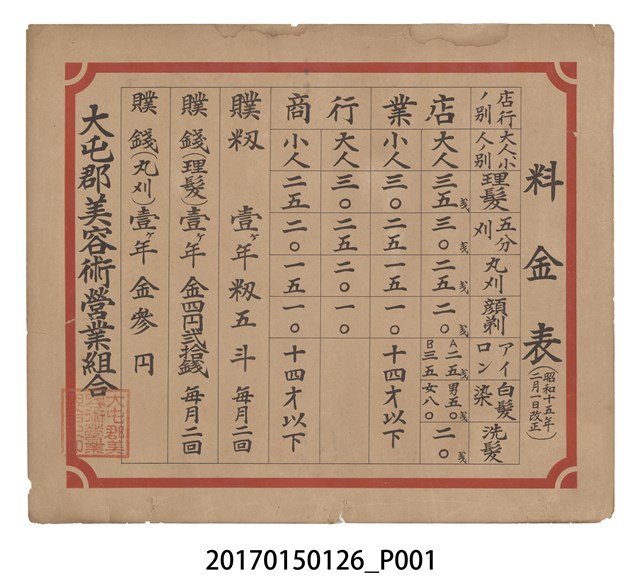 料金表
(昭和十五年
二月一日改正)
店行ノ別 大人小人ノ別 理髮 五分刈 丸刈 顏剃 アイロン 白髮染 洗髮
店 大人 三五戔 三〇戔 二五戔 二〇戔 A二五戔 B三五 男五〇戔 女八〇 二〇戔
業 小人 三〇 二〇 一五 一〇 十四才以下
行 大人 三〇 二五 二〇 一〇
商 小人 二五 二〇 一五 一〇 十四才以下
贌籾 壹ヶ年 籾五斗 每月二回
贌錢(理髮)壹ヶ年 金四円弐拾錢 每月二回
贌錢(丸刈)壹ヶ年 金參円
大屯郡美容術營業組合
大屯郡美
容術營業
20170150126_P001